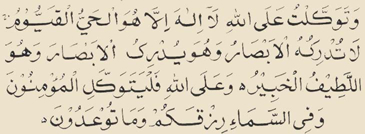 وَتَوَكَّلْتُ عَلَى اللهِ لَآ اِلٰهَ اِلَّا هُوَ الْحَيُّ الْقَيُّوْمُ
لَا تُدْرِكُهُ الْاَبْصَارُ وَهُوَ يُدْرِكُ الْاَبْصَارَ وَهُوَ
اللَّطِيْفُ الْخَبِيْرُ ه وَعَلَى اللهِ فَلْيَتَوَكَّلِ الْمُؤْمِنُوْنَ
وَفِى السَّمَاءِ رِزْقُكُمْ وَمَا تُوْعَدُوْنَ ه